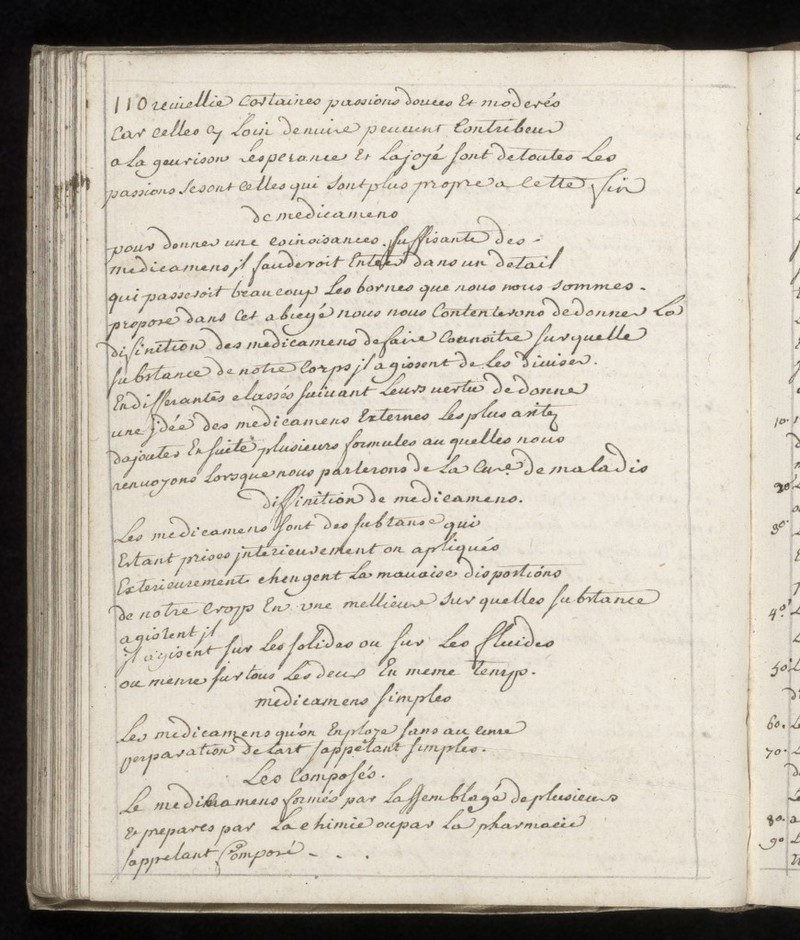 110 recuellie Certaines passions douces Et moderés
Car celles cy Loin denuire peuvent Contribeur
a La geurison Lesperance Et Lajoyé sont detoutes Les
passions Sesont Celles qui sont plus propre a Cette fin
de medicamens
pour donner une coinoisances suffisante des
medicamens jl fauderoit Entrer dans un detail
qui passeroit beaucoup Les bornes que nous nous sommes
propose dans Cet abregé nous nous Contenterons dedonner La
difinition des medicamens defaire Connoitre sur quelle
substance de notre Corps jl agissent de Les diviser.
En differantes classés suivant Leurs vertu de donne
une jdée des medicamens Externes Les plus
dajouter En suite plusieurs formules au quelles nous
renvoyons Lorsque nous parlerons de La Cure de maladis
diffinition de medicamens.
Les medicamens sont des substanse qui
Estant prises jnterieurement ou apliqués
Exterieurement chengent La mauaise disposrtions
de notre Crops En une mellieur sur quelles substance
agistent jl
jl agisent sur Les solides ou sur Les fluides
ou meme sur tous Les deux En meme temps.
medicamens simples
Les medicamens qu'on Enploye sans au cune
perparation de Lart sappelant simples.
Les Composés.
Le medicamens formés par Lassemblagé deplusieurs
Et prepares par La chimie ou par La pharmacie
sappelant Composé - . .
10
20
30.
4º.
50
60.
70.
80.
90